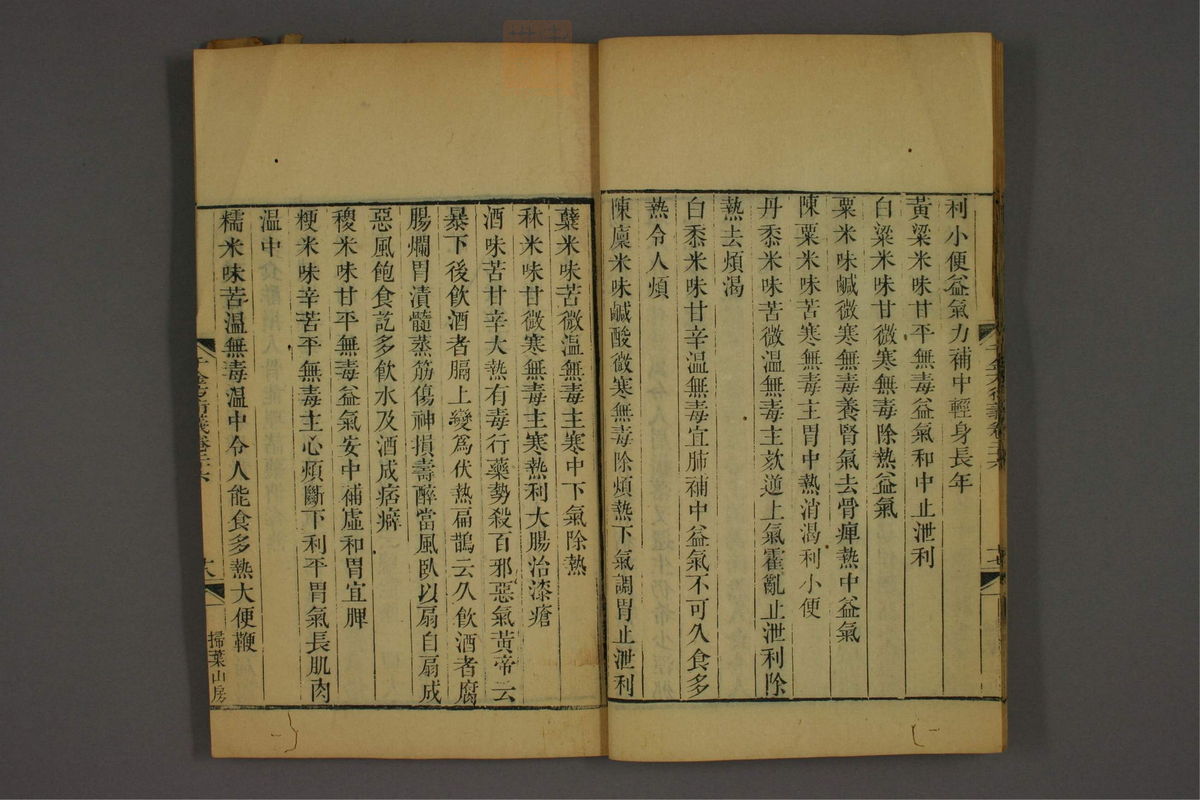 利小便益氣力補中輕身長年
黃粱米味甘平無毒益氣和中止泄利
白粱米味甘微寒無毒除熱益氣
粟米味鹹微寒無毒養腎氣去骨痺熱中益氣
陳粟米味苦寒無毒主胃中熱消渴利小便
丹黍米味苦微溫無毒主欬逆上氣霍亂止泄利除
熱去煩渴
白黍米味甘辛溫無毒宜肺補中益氣不可久食多
熱令人煩
陳廩米味鹹酸微寒無毒除煩熱下氣調胃止泄利
蘖米味苦微溫無毒主寒中下氣除熱
秫米味甘微寒無毒主寒熱利大腸治漆瘡
酒味苦甘辛大熱有毒行藥勢殺百邪惡氣黃帝云
暴下後飲酒者膈上變爲伏熱扁鵲云久飲酒者腐
腸爛胃漬髓蒸筋傷神損壽醉當風臥以扇自扇成
惡風飽食訖多飲水及酒成痞癖
稷米味甘平無毒益氣安中補虛和胃宜脾
粳米味辛苦平無毒主心煩斷下利平胃氣長肌肉
溫中
糯米味苦溫無毒溫中令人能食多熱大便鞭
千金方衍義卷二十六
掃葉山房